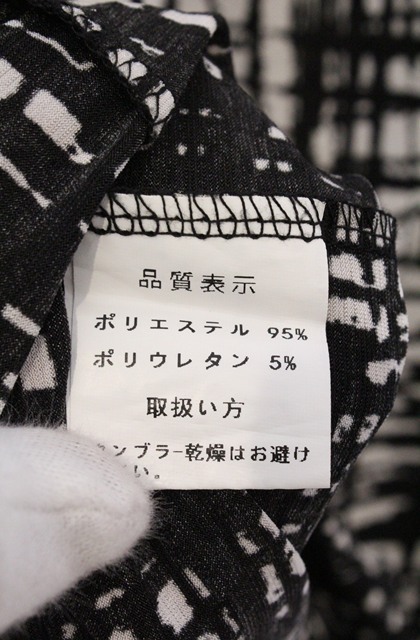 品質表示
ポリエステル 95%
ポリウレタン 5%
取扱い方
ンブラー乾燥はお避け
い。